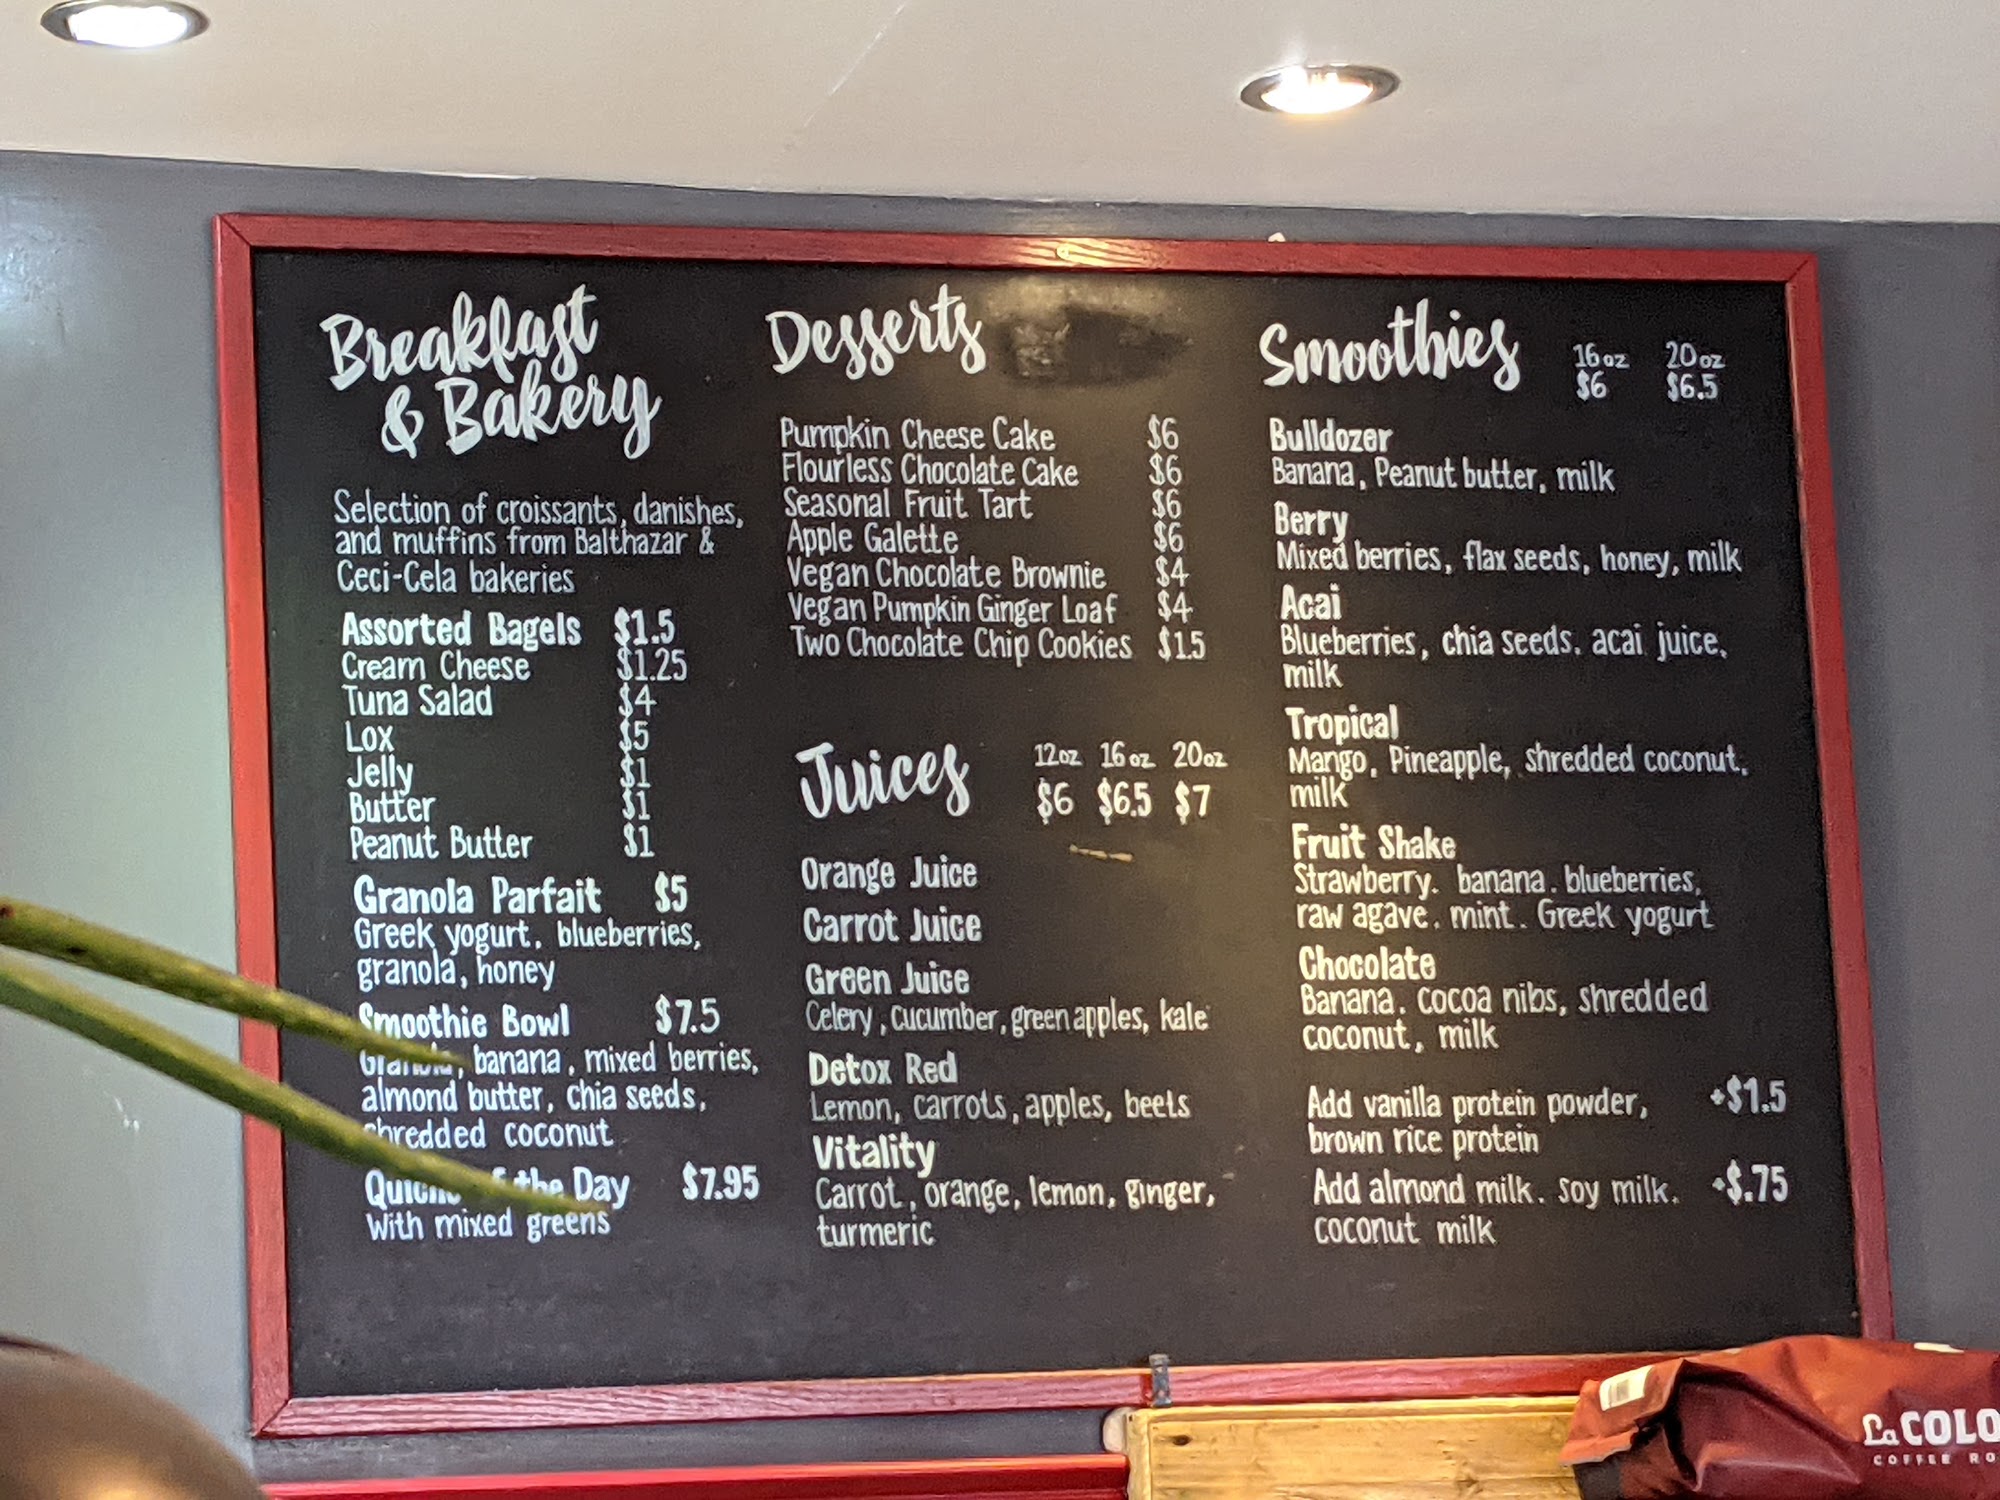 Breakfast
& Bakery
Selection of croissants, danishes,
and muffins from Balthazar &
Ceci-Cela bakeries
Assorted Bagels $1.5
Cream Cheese $1.25
Tuna Salad $4
Lox $5
Jelly $1
Butter $1
Peanut Butter $1
Granola Parfait $5
Greek yogurt, blueberries,
granola, honey
Smoothie Bowl $7.5
Granola, banana, mixed berries,
almond butter, chia seeds,
shredded coconut
Quiche of the Day $7.95
With mixed greens
Desserts
Pumpkin Cheese Cake $6
Flourless Chocolate Cake $6
Seasonal Fruit Tart $6
Apple Galette $6
Vegan Chocolate Brownie $4
Vegan Pumpkin Ginger Loaf $4
Two Chocolate Chip Cookies $1.5
Juices
12oz 16oz 20oz
$6 $6.5 $7
Orange Juice
Carrot Juice
Green Juice
Celery, cucumber, green apples, kale
Detox Red
Lemon, carrots, apples, beets
Vitality
Carrot, orange, lemon, ginger,
turmeric
Smoothies
16oz 20oz
$6 $6.5
Bulldozer
Banana, Peanut butter, milk
Berry
Mixed berries, flax seeds, honey, milk
Acai
Blueberries, chia seeds, acai juice,
milk
Tropical
Mango, Pineapple, shredded coconut,
milk
Fruit Shake
Strawberry, banana, blueberries,
raw agave, mint, Greek yogurt
Chocolate
Banana, cocoa nibs, shredded
coconut, milk
Add vanilla protein powder, +$1.5
brown rice protein
Add almond milk, soy milk, +$.75
coconut milk
La COLO
COFFEE RO